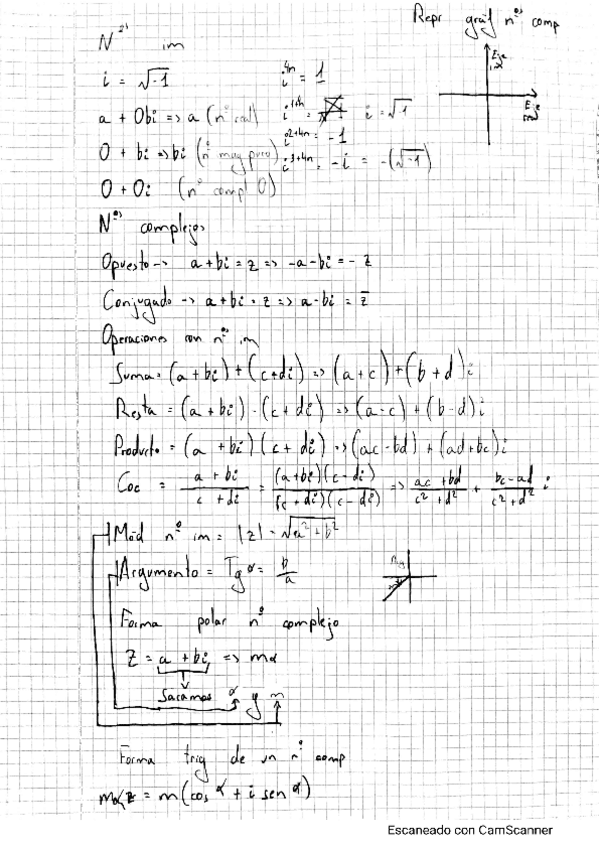 Repr gráf nºs comp
Nºs im
Eje
i = √-1
i^4n = 1
a + 0bi => a (nº real)
i^1+4n = i = √-1
Eje real
0 + bi => bi (nº imag puro)
i^2+4n = -1
i^3+4n = -i = -(√-1)
0 + 0i (nº compl 0)
Nºs complejos
Opuesto -> a + bi = z => -a - bi = - z
Conjugado -> a + bi = z => a - bi = z̄
Operaciones con nº im
Suma = (a + bi) + (c + di) => (a + c) + (b + d)i
Resta = (a + bi) - (c + di) => (a - c) + (b - d)i
Producto = (a + bi)(c + di) => (ac - bd) + (ad + bc)i
Coc = a + bi / c + di = (a + bi)(c - di) / (c + di)(c - di) => ac + bd / c² + d² + bc - ad / c² + d² i
Mód nº im = |z| = √a² + b²
Argumento = Tg α = b/a
Forma polar nº complejo
Z = a + bi => mα
Sacamos α y m
Forma trig de un nº comp
mα z = m(cos α + i sen α)
Escaneado con CamScanner